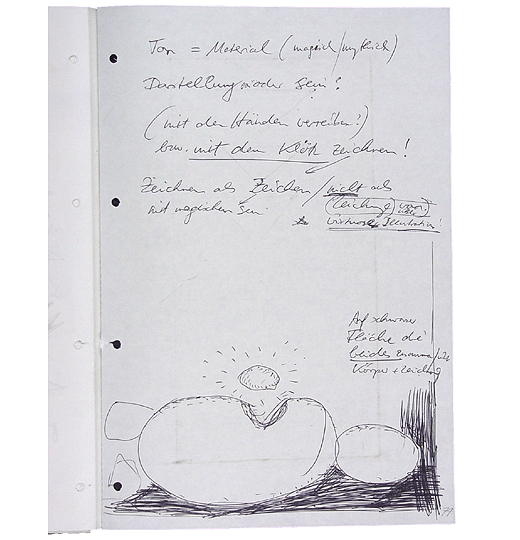 Ton = Material (magisch/mythisch)
Darstellung oder Sein?
(mit den Händen verreiben?)
bzw. mit dem Kloß zeichnen!
Zeichnen als Zeichen / nicht als
mit magischem Sein
(Zeichnung)
virtuose Illustration!
Auf schwarzer
Fläche die
beiden zusammen
Körper + Zeichnung